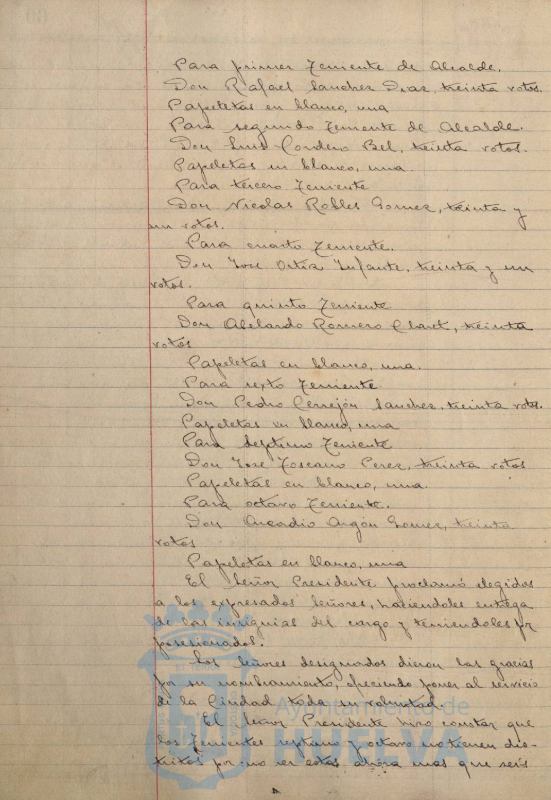 Para primer Teniente de Alcalde.
Don Rafael Sanchez Diaz, treinta votos.
Papeletas en blanco, una
Para segundo Teniente de Alcalde.
Don Luis Cordero Bel, treinta votos.
Papeletas en blanco, una.
Para tercero Teniente
Don Nicolas Robles Gomez, treinta y
un votos.
Para cuarto Teniente.
Don Jose Ortiz Infante, treinta y un
votos.
Para quinto Teniente
Don Abelardo Romero Claret, treinta
votos
Papeletas en blanco, una.
Para sexto Teniente
Don Pedro Cerrejón Sanchez, treinta votos.
Papeletas en blanco, una
Para septimo Teniente
Don Jose Toscano Perez, treinta votos
Papeletas en blanco, una.
Para octavo Teniente.
Don Arcadio Aragón Gomez, treinta
votos
Papeletas en blanco, una
El Señor Presidente proclamó elegidos
a los expresados Señores, haciendoles entrega
de las insignias del cargo y teniendoles por
posesionados.
Los Señores designados dieron las gracias
por su nombramiento, ofreciendo poner al servicio
de la Ciudad toda su voluntad.
El Señor Presidente hizo constar que
los Tenientes septimo y octavo no tienen dis-
tritos por no ser estos ahora mas que seis
Ayuntamiento de
HUELVA